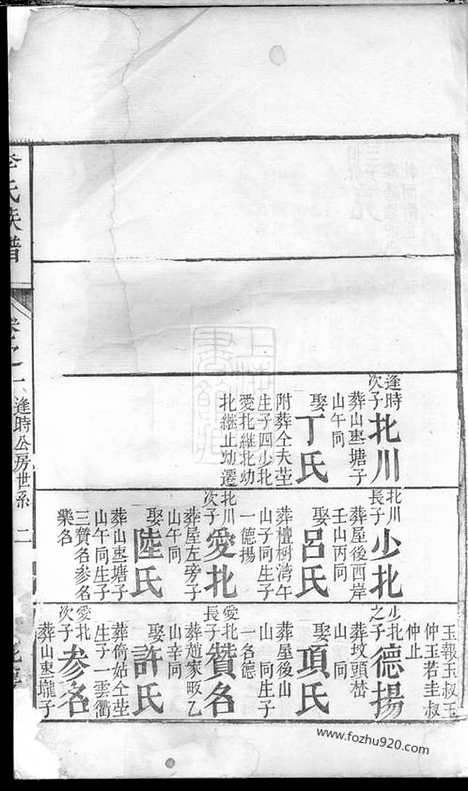 氏族譜
卷之一
逢時公房世系
二
逢時次子
北川
葬山塘子
山午同
娶
丁氏
附葬仝夫茔
生子四少北
愛北繼北幼
北繼止幼遷
北川長子
少北
葬屋後西岸
壬山丙同
娶
呂氏
葬檀樹湾午
山子同生子
一德揚
北川次子
愛北
葬屋左旁子
山午同
娶
陸氏
葬山塘子
山午同生子
三贊名参名
樂名
少北之子
德揚
葬坟頭
山同
娶
項氏
葬屋後山
山同生子
一名德
愛北長子
贊名
葬趙家畈乙
山辛同
娶
許氏
葬倚姑仝茔
生子一雲衢
愛北次子
参名
葬山壠子
玉報玉叔玉
仲玉若圭叔
仲止
www.fozhu920.com